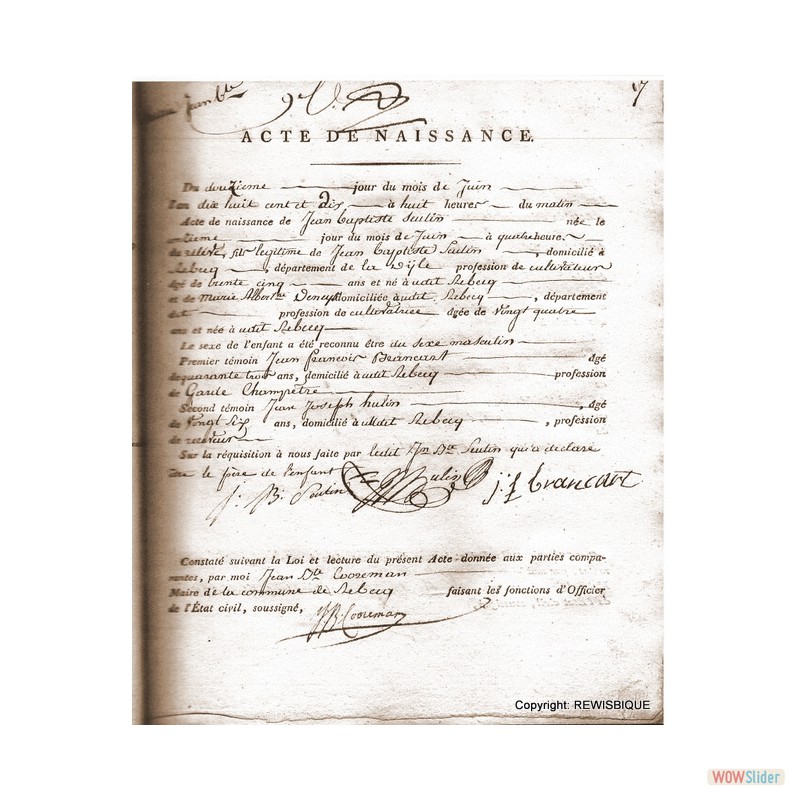 Jean bte 9e 17
ACTE DE NAISSANCE.
Du douzieme jour du mois de Juin
l'an dix huit cent et dix à huit heures du matin
Acte de naissance de Jean baptiste Seutin née le
onzieme jour du mois de Juin à quatre heure.
du relivé, fils legitime de Jean Baptiste Seutin, domicilié à
Rebecq, département de la Dÿle profession de cultivateur
âgé de trente cinq ans et né audit Rebecq
et de Marie Albert.ne Deneyst domiciliée audit Rebecq, département
dit profession de cultivatrice âgée de vingt quatre
ans et née à udit Rebecq
Le sexe de l'enfant a été reconnu être du sexe masculin
Premier témoin Jean francois Brancart âgé
de quarante trois ans, domicilié à udit Rebecq profession
de Garde Champetre
Second témoin Jean Joseph hulin, âgé
de vingt six ans, domicilié à udit Rebecq, profession
de receveur
Sur la réquisition à nous faite par ledit Jn Bte Seutin qui a declaré
être le père de l'enfant
J: B: Seutin Hulin j: f brancart
Constaté suivant la Loi et lecture du présent Acte donnée aux parties compa-
rantes, par moi Jean Bte Cooreman
Maire de la commune de Rebecq faisant les fonctions d'Officier
de l'État civil, soussigné, JB Cooreman
Copyright: REWISBIQUE
WOWSlider